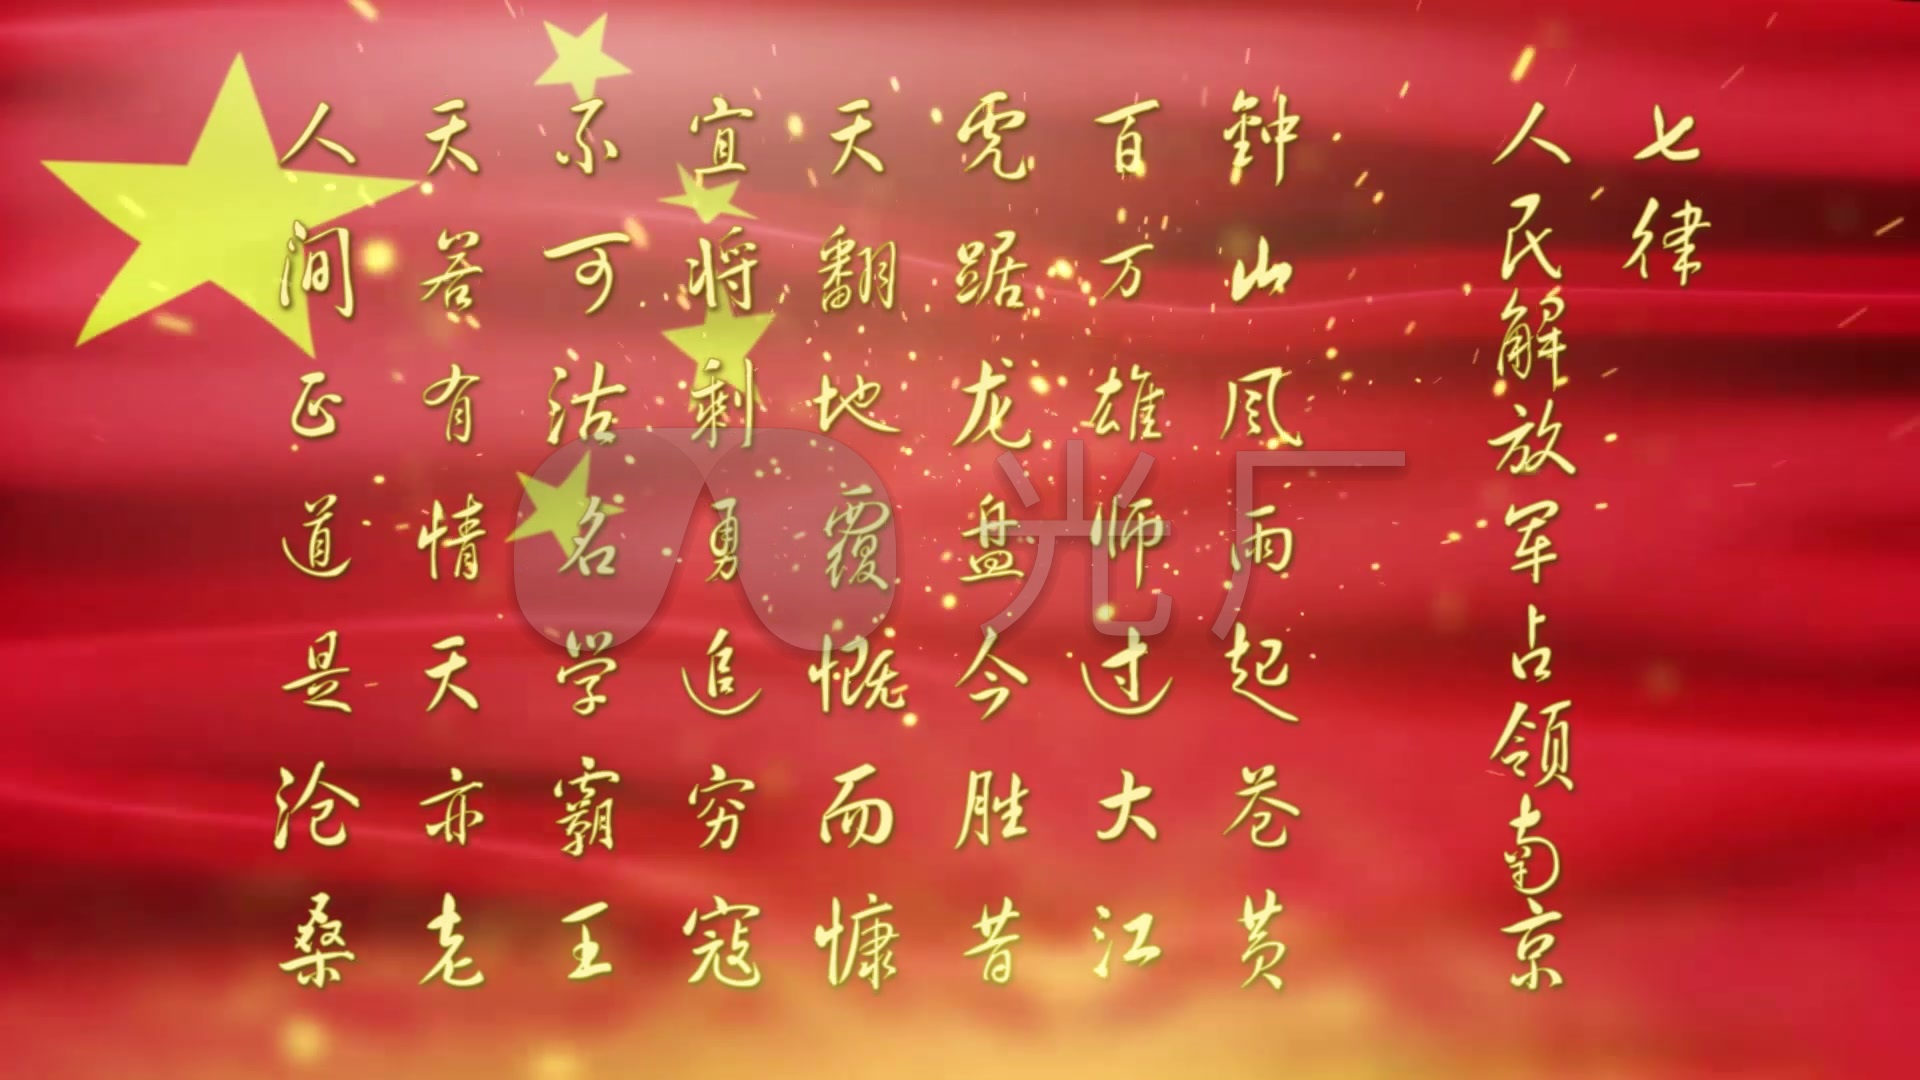 七律
人民解放军占领南京
鈡山风雨起苍黄
百万雄师过大江
虎踞龙盘今胜昔
天翻地覆慨而慷
宜将剩勇追穷寇
不可沽名学霸王
天若有情天亦老
人间正道是沧桑
光厂